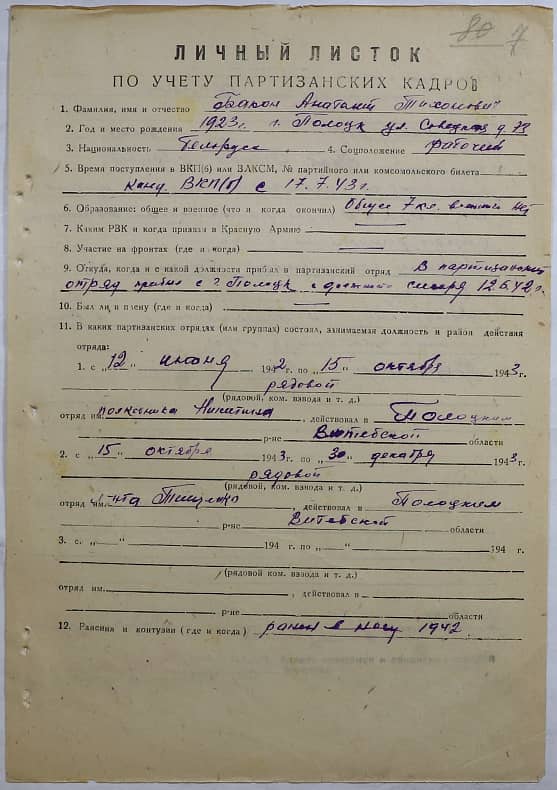 80 7
ЛИЧНЫЙ ЛИСТОК
ПО УЧЕТУ ПАРТИЗАНСКИХ КАДРОВ
1. Фамилия, имя и отчество Бакон Анатолий Тихонович
2. Год и место рождения 1923 г. г. Полоцк ул. Советская д. 73
3. Национальность белорус 4. Соцположение рабочий
5. Время поступления в ВКП(б) или ВЛКСМ, № партийного или комсомольского билета
канд. ВКП(б) с 17.7.43 г.
6. Образование: общее и военное (что и когда окончил) Общее 7 кл. военного нет
7. Каким РВК и когда призван в Красную Армию —
8. Участие на фронтах (где и когда) —
9. Откуда, когда и с какой должности прибыл в партизанский отряд В партизанский
отряд прибыл с г. Полоцк с должности слесаря 12.6.42 г.
10. Был ли в плену (где и когда) —
11. В каких партизанских отрядах (или группах) состоял, занимаемая должность и район действия
отряда:
1. с „12" июня 1942 г. по „15" октября 1943 г.
рядовой
(рядовой, ком. взвода и т. д.)
отряд им. , действовал в Полоцком
р-не Витебской области
2. с „15" октября 1943 г. по „30" декабря 1943 г.
рядовой
(рядовой, ком. взвода и т. д.)
отряд им. , действовал в Полоцком
р-не Витебской области
3. с „ " 194 г. по „ " 194 г.
(рядовой ком. взвода и т. д.)
отряд им. , действовал в
р-не области
12. Ранения и контузии (где и когда) ранен в 1942